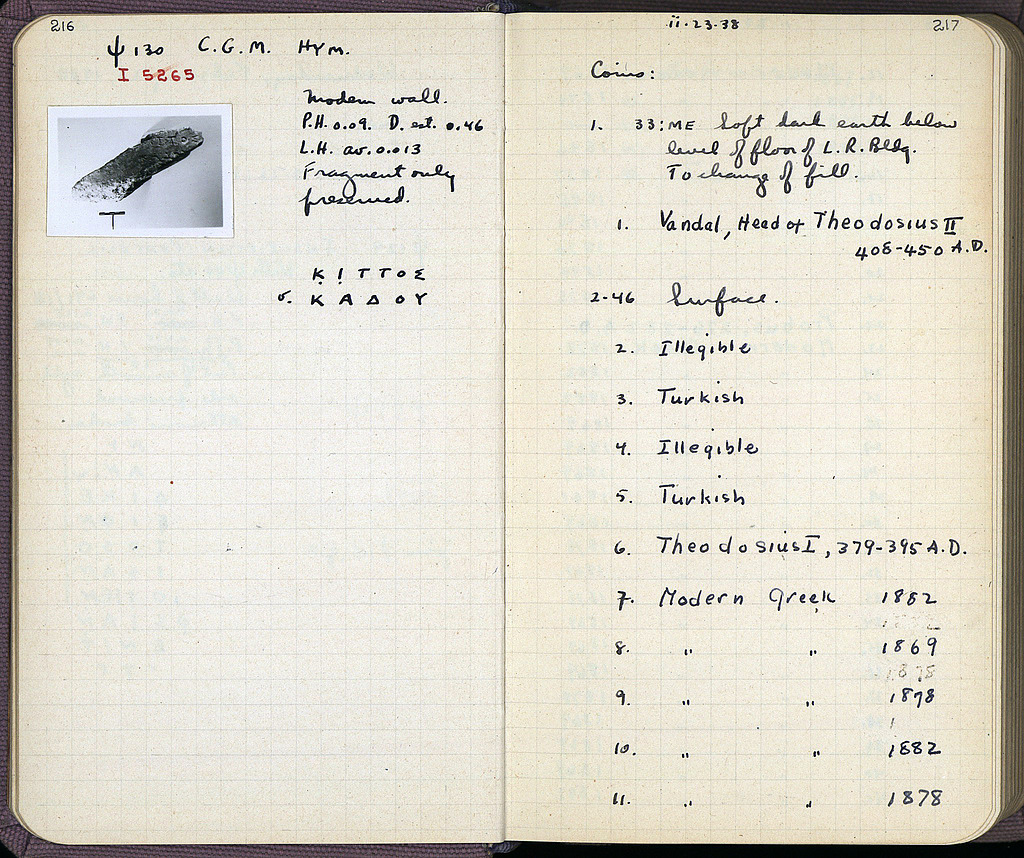 216
Ψ 130 C.G.M. HYM.
I 5265
Modern wall.
P.H. 0.09. D. est. 0.46
L.H. av. 0.013
Fragment only
preserved.
Κ̣ Ι̣ Τ Τ Ο Σ
σ. Κ Α Δ Ο Υ
ii·23·38 217
Coins:
1. 33:ME Soft dark earth below
level of floor of L.R. Bldg.
To change of fill.
1. Vandal, Head of Theodosius II
408-450 A.D.
2-46 Surface.
2. Illegible
3. Turkish
4. Illegible
5. Turkish
6. Theodosius I, 379-395 A.D.
7. Modern Greek 1882
8. " " 1869
1878
9. " " 1878
10. " " 1882
11. " " 1878